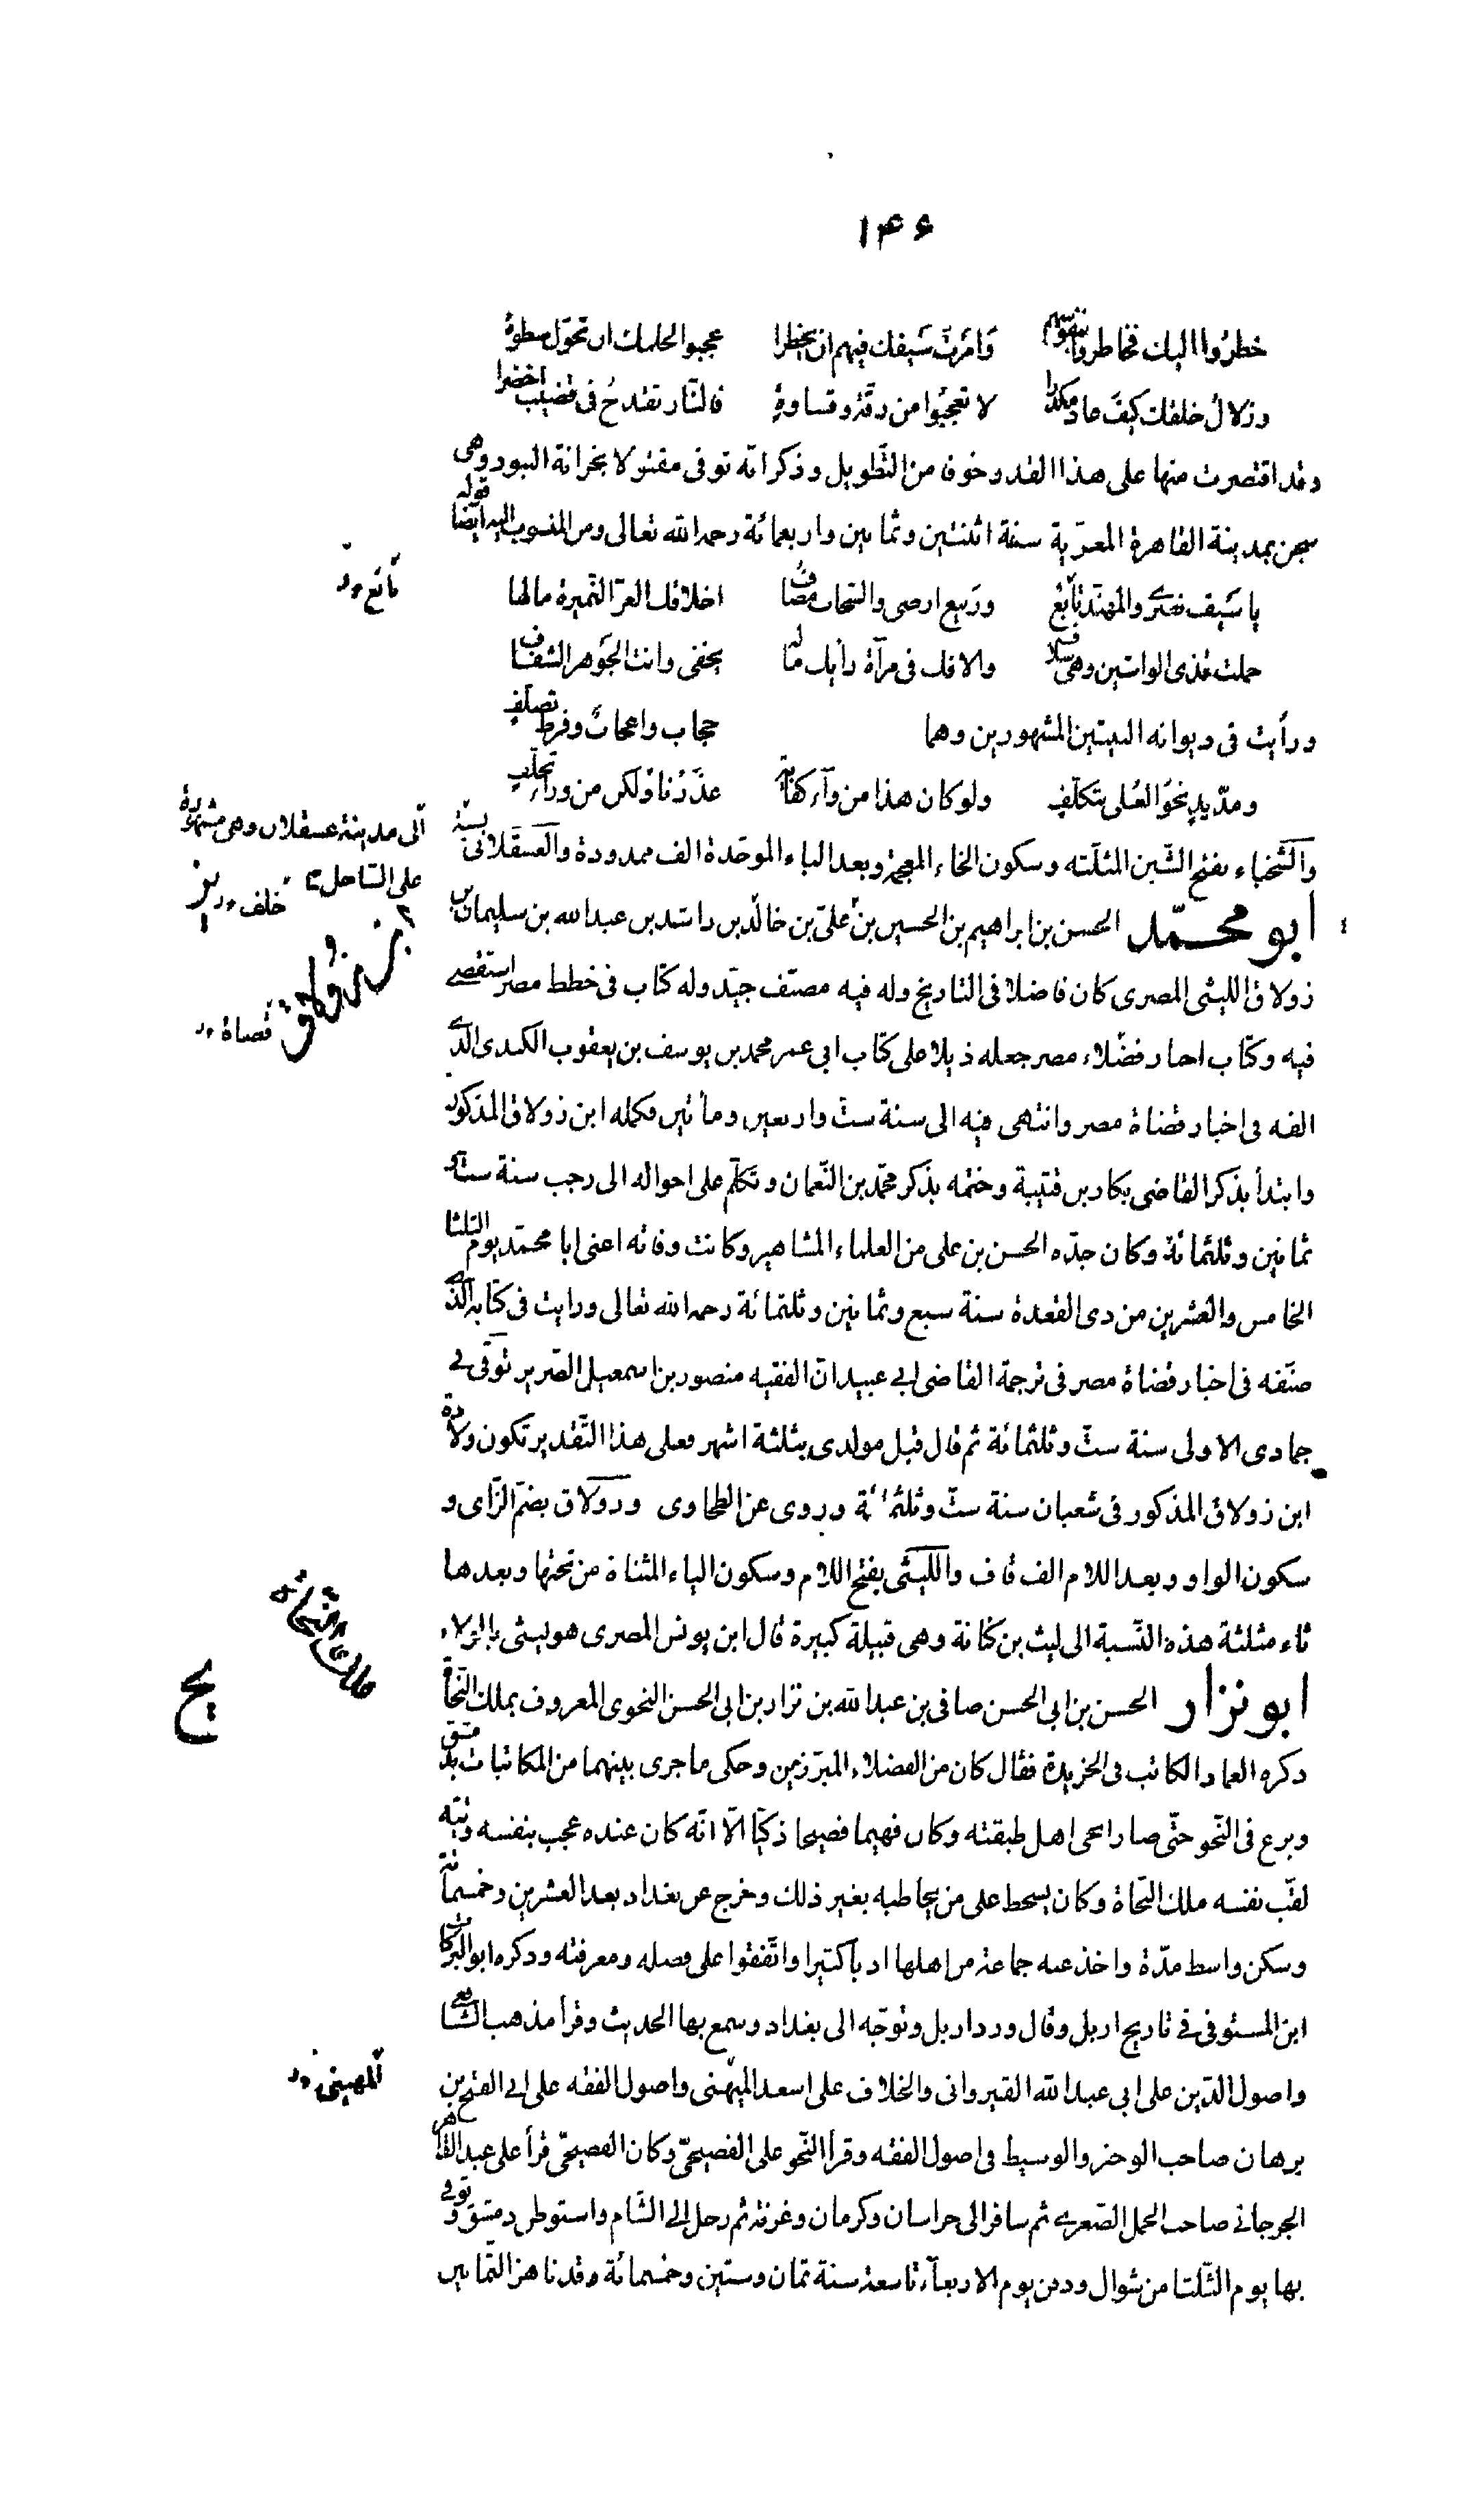 ۱۴۶
خطروا اليك فخاطروا بنفوسهم وامرت سيفك فيهم ان يخطرا عجبوا لحلمك ان تحول سطوة
وزلال خلقك كيف عاد مكدرا لا تعجبوا من رقة وقساوة فالنار تقدح في قضيب اخضرا
وقد اقتصرت منها على هذا القدر خوفا من التطويل وذكر انه توفي مقتولا بخزانة البنود وهي
سجن بمدينة القاهرة المعزية سنة اثنتين وثمانين واربعمائة رحمه الله تعالى ومن المنسوب اليه ايضا قوله
يا سيف نصري والمهند تابع وربيع ارضي والسحاب مصاف اخلاقك الغر النميرة مالها
حملت قذى الواشين وهي سلاف والافك في مرآة رأيك ماله يخفى وانت الجوهر الشفاف
ورأيت في ديوانه البيتين المشهورين وهما حجاب واعجاب وفرط تصلف
ومد يد نحو العلى بتكلف ولو كان هذا من وراء كفاية عذرنا ولكن من وراء تخلف
والشخباء بفتح الشين المثلثة وسكون الخاء المعجمة وبعد الباء الموحدة الف ممدودة والعسقلاني نسبة
الى مدينة عسقلان وهي مشهورة
على الساحل
ابو محمد الحسن بن ابراهيم بن الحسين بن علي بن خالد بن راشد بن عبدالله بن سليمان بن
زولاق الليثي المصري كان فاضلا في التاريخ وله فيه مصنف جيد وله كتاب في خطط مصر استقصى
فيه وكتاب اخبار فضلاء مصر جعله ذيلا على كتاب ابي عمر محمد بن يوسف بن يعقوب الكندي الذي
الفه في اخبار قضاة مصر وانتهى فيه الى سنة ست واربعين ومائتين فكمله ابن زولاق المذكور
وابتدأ بذكر القاضي بكار بن قتيبة وختمه بذكر محمد بن النعمان وتكلم على احواله الى رجب سنة ست و
ثمانين وثلثمائة وكان جده الحسن بن علي من العلماء المشاهير وكانت وفاته اعني ابا محمد يوم الثلثا
الخامس والعشرين من ذي القعدة سنة سبع وثمانين وثلثمائة رحمه الله تعالى ورايت في كتابه الذي
صنفه في اخبار قضاة مصر في ترجمة القاضي ابي عبيد ان الفقيه منصور بن اسمعيل الضرير توفي في
جمادى الاولى سنة ست وثلثمائة ثم قال قبل مولدي بثلثة اشهر فعلى هذا التقدير تكون ولادة
ابن زولاق المذكور في شعبان سنة ست وثلثمائة وروى عن الطحاوي وزولاق بضم الزاي و
سكون الواو وبعد اللام الف قاف والليثي بفتح اللام وسكون الياء المثناة من تحتها وبعدها
ثاء مثلثة هذه النسبة الى ليث بن كنانة وهي قبيلة كبيرة قال ابن يونس المصري هو ليثي بالولاء
ابو نزار الحسن بن ابي الحسن صافي بن عبدالله بن نزار بن ابي الحسن النحوي المعروف بملك النحاة
ذكره العماد الكاتب في الخريدة فقال كان من الفضلاء المبرزين وحكى ما جرى بينهما من المكاتبات بدمشق
وبرع في النحو حتى صار انحى اهل طبقته وكان فهيما فصيحا ذكيا الا انه كان عنده عجب بنفسه وتيه
لقب نفسه ملك النحاة وكان يسخط على من يخاطبه بغير ذلك وخرج عن بغداد بعد العشرين وخمسمائة
وسكن واسط مدة واخذ عنه جماعة من اهلها ادبا كثيرا واتفقوا على فضله ومعرفته وذكره ابو البركات
ابن المستوفي في تاريخ اربل وقال ورد اربل وتوجه الى بغداد وسمع بها الحديث وقرأ مذهب الشافعي
واصول الدين على ابي عبدالله القيرواني والخلاف على اسعد الميهني واصول الفقه على ابي الفتح بن
برهان صاحب الوجيز والوسيط في اصول الفقه وقرأ النحو على الفصيحي وكان الفصيحي قرأ على عبد القاهر
الجرجاني صاحب الجمل الصغرى ثم سافر الى خراسان وكرمان وغزنة ثم رحل الى الشام واستوطن دمشق وتوفي
بها يوم الثلثا من شوال ودفن يوم الاربعاء تاسعه سنة ثمان وستين وخمسمائة وقد ناهز الثمانين
خلف
ابن زولاق
قضاة
ملك النحاة
يح
المهيني